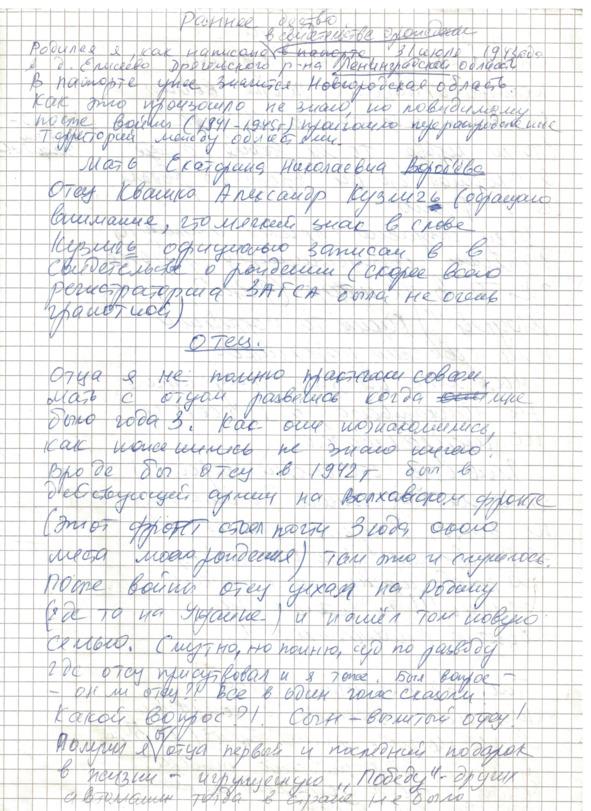 Раннее детство.
в свидетельстве о рождении
Родился я, как написано в паспорте 31 июля 1943 года
в д. Ерисево Дрегельского р-на Ленинградской области
В паспорте уже значится Новгородская область.
Как это произошло не знаю, но повидимому
после войны (1941-1945г) произошло перераспределение
территорий между областями.
Мать Екатерина Николаевна Воробьева
Отец Квашко Александр Кузмичь (обращаю
внимание, что мягкий знак в слове
Кузмичь официально записан в в
свидетельстве о рождении (скорее всего
регистраторша ЗАГСА была не очень
грамотной)
Отец.
Отца я не помню практически совсем.
Мать с отцом развелись когда мне
было года 3. Как они познакомились,
как поженились не знаю ничего.
Вроде бы отец в 1942 г был в
действующей армии на Волховском фронте
(Этот фронт стоял почти 3 года около
места моего рождения) там это и случилось.
После войны отец уехал на Родину
(где то на Украине) и нашёл там новую
семью. Смутно, но помню, суд по разводу
где отец присутвовал и я тоже. Был вопрос -
- он ли отец?! Все в один голос сказали
Какой вопрос?! Сын - вылитый отец!
Получил я от отца первый и последний подарок
в жизни - игрушечную "Победу" - других
автомашин тогда в стране не было